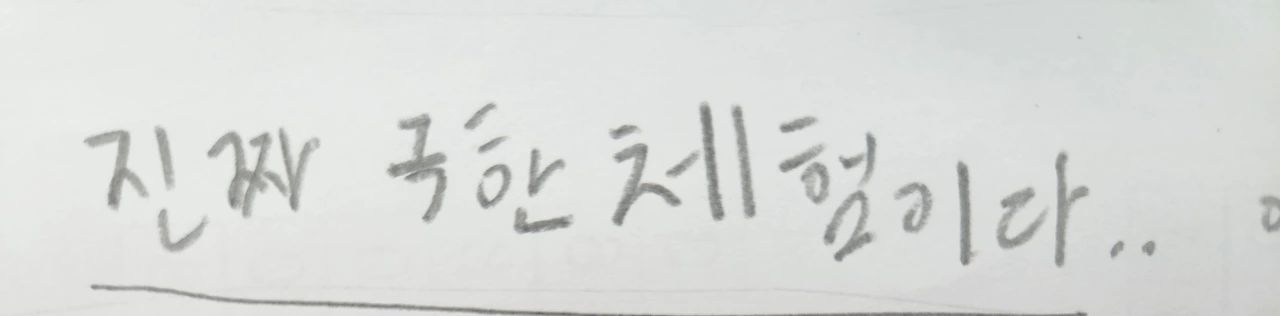 진짜 극한체험이다..